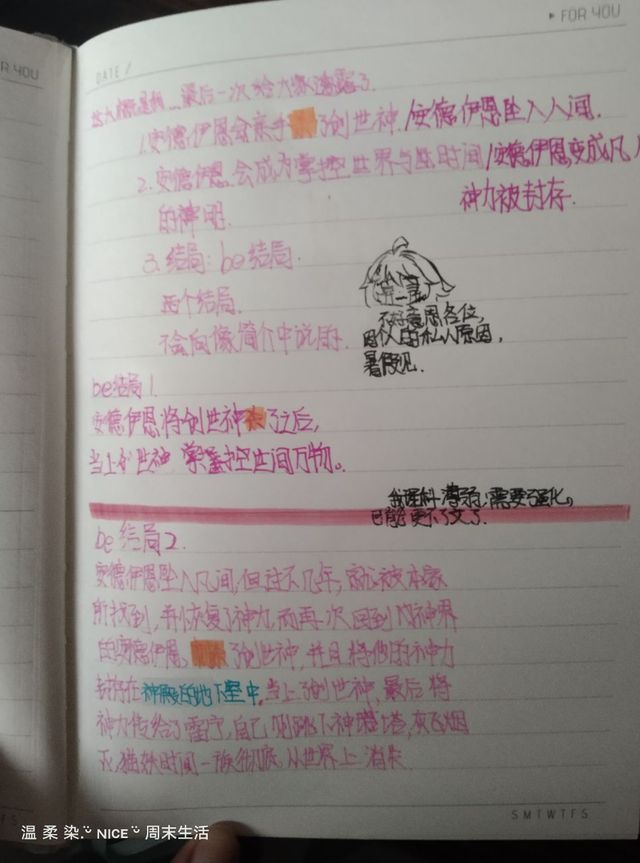 R YOU
▸ FOR YOU
DATE /
最后一次给大家透露了
1.安德伊恩会亲手了创世神./安德伊恩坠入人间.
2.安德伊恩.会成为掌控世界与时间/安德伊恩变成凡
的神明.
神力被封存.
3.结局:be结局.
两个结局.
不会向像简介中说的
不好意思各位,
因仪的私人原因,
暑假见.
be结局1.
安德伊恩将创世神杀了之后,
当上创世神 掌控世间万物。
我理科薄弱:需要强化,
更不了文了.
be结局2.
安德伊恩坠入凡间,但过不几年,就被本家
所找到,并恢复了神力,而再次回到神界
的安德伊恩,了创世神,并且将他的神力
封存在神殿的地下室中,当上了创世神,最后将
神力传给了雷宁,自己则跳下神塔,灰飞烟
灭,猫妖时间一族彻底,从世界上 消失
SMTWTFS
温 柔 染 NICE 周末生活